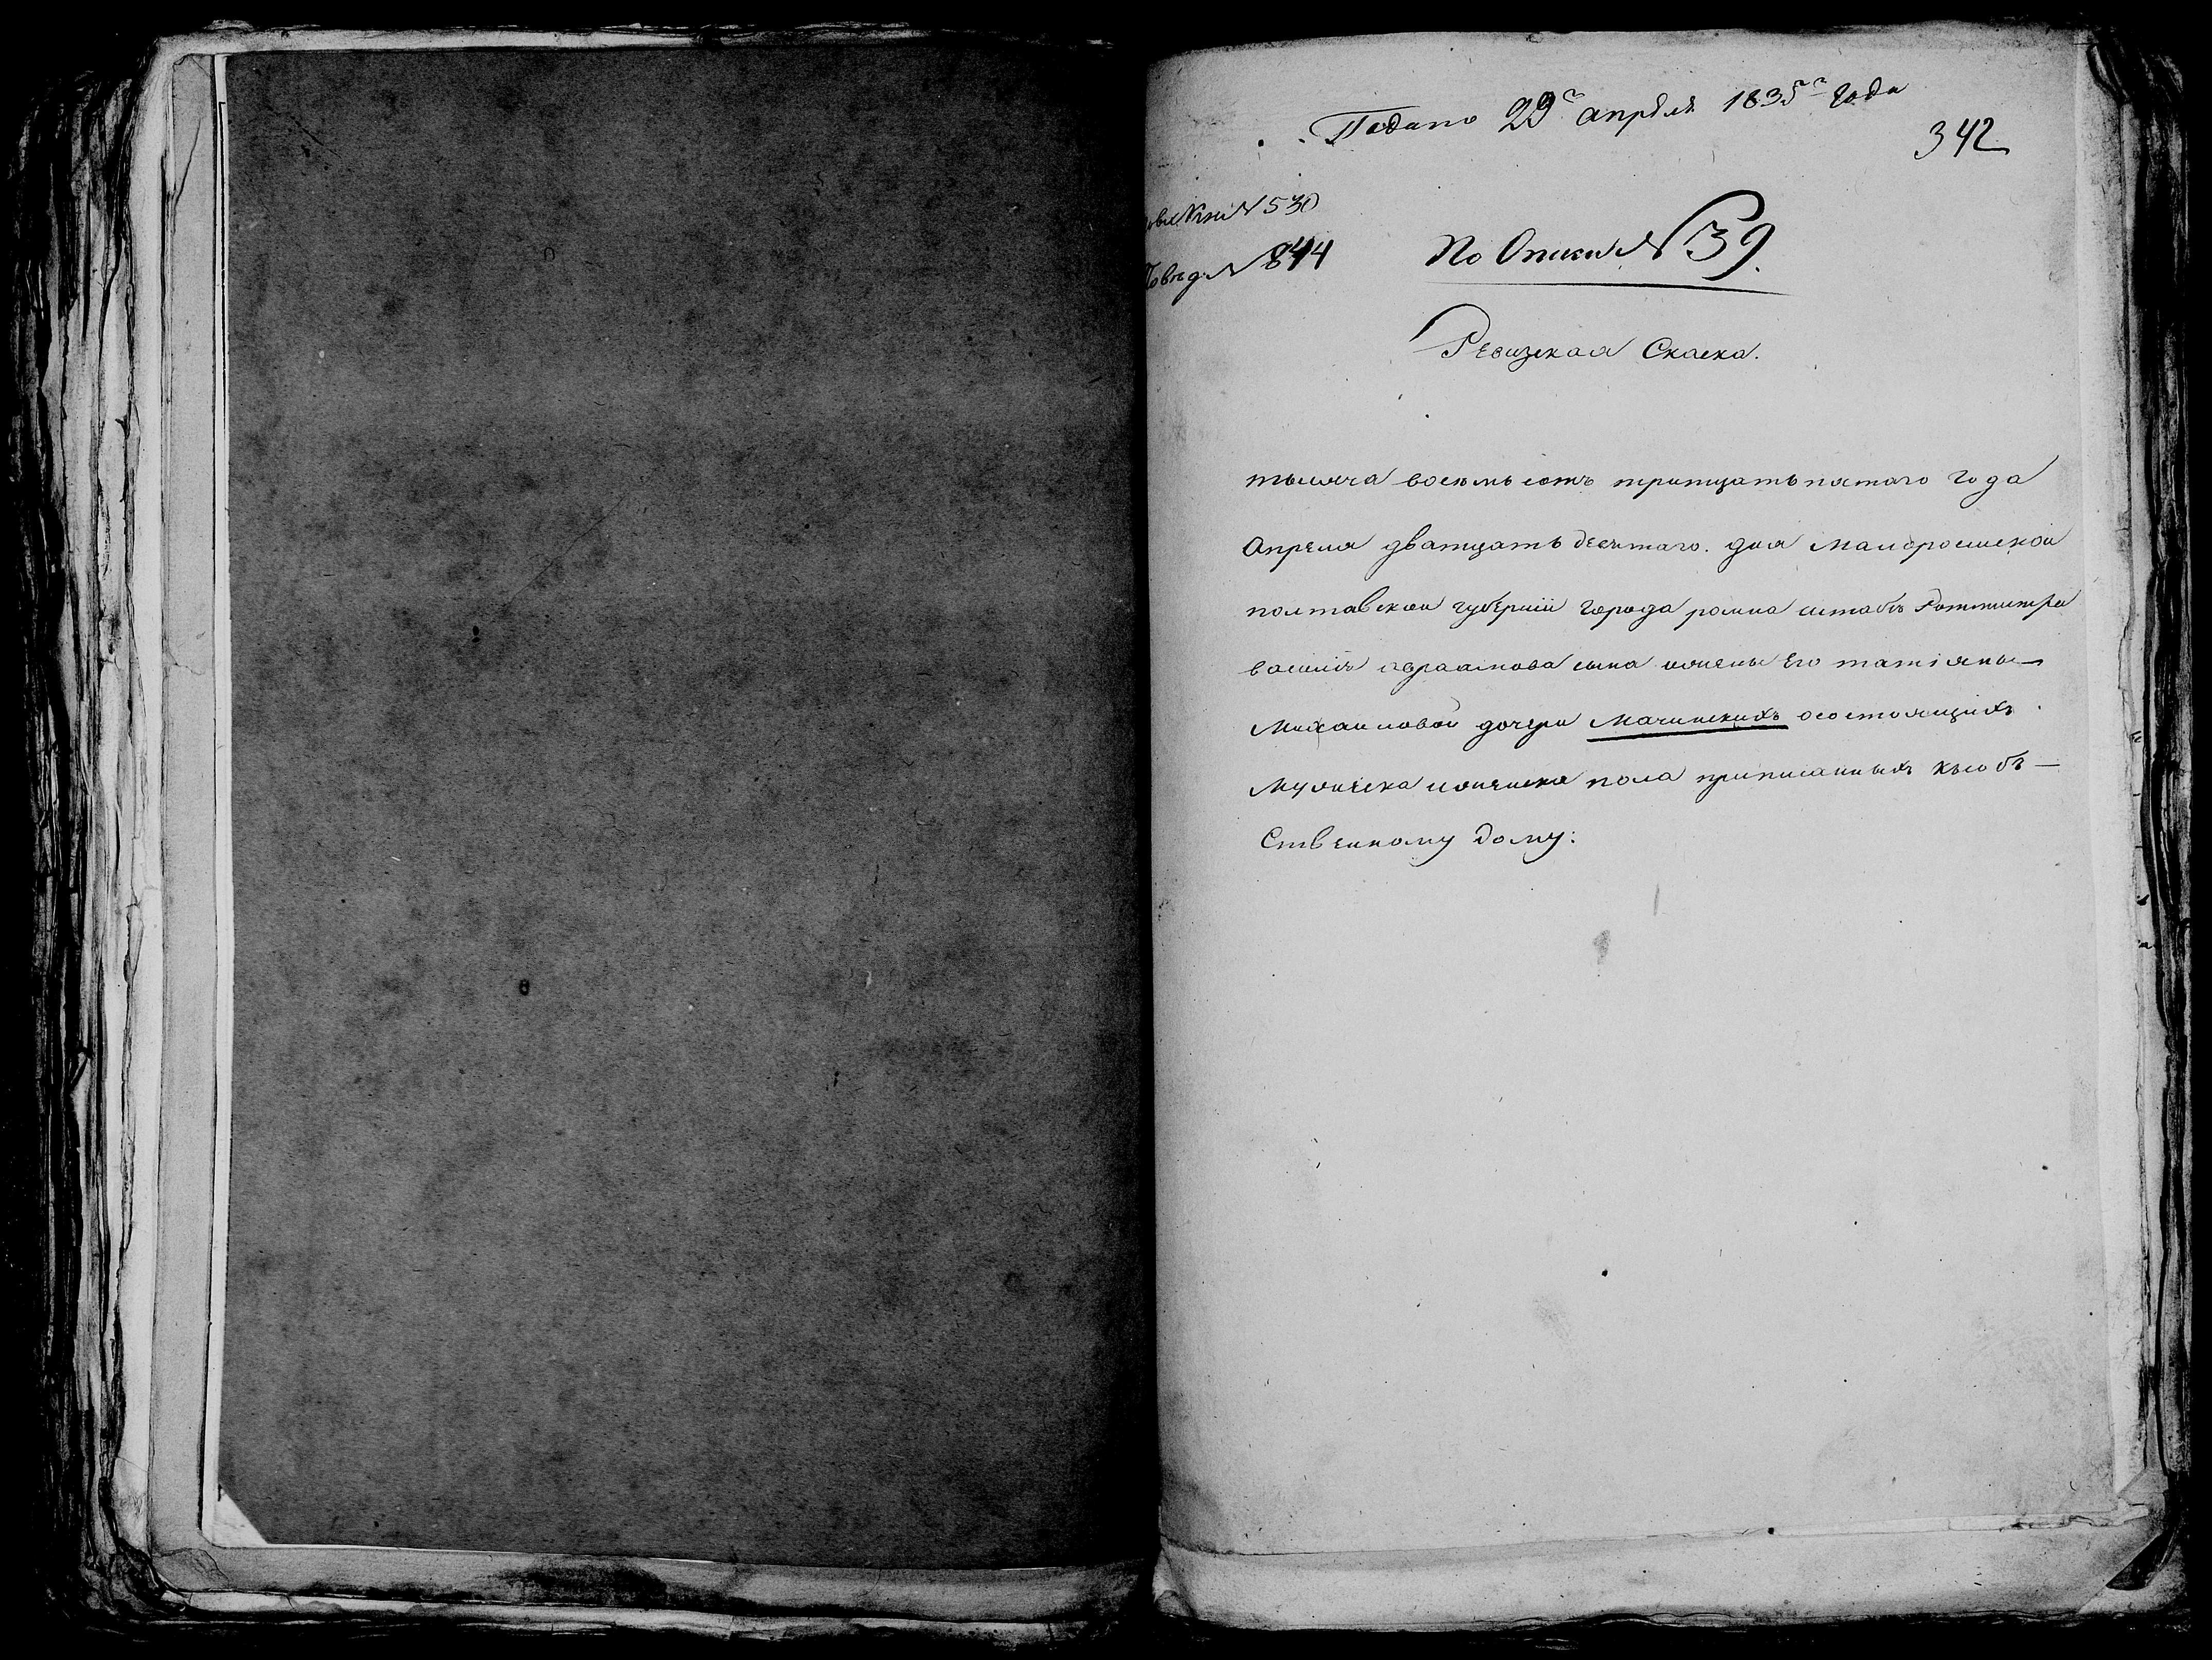 Подано 29го апрѣля 1835го года
342
Кни N 530
По вѣд. N 844
По Описи N 39.
Ревизская Скаска.
тысяча восемьсотъ тритцать пятаго года
Апреля дватцать десятаго. дня Малороссиской
полтавской губерніи города ромна штабъ Ротмистра
василія авраамова сына ижены Его татіяны
Михаиловой дочери Мачинскихъ осостоящихъ
Мужеска иженска пола приписанныхъ ксоб
Ственному дому: